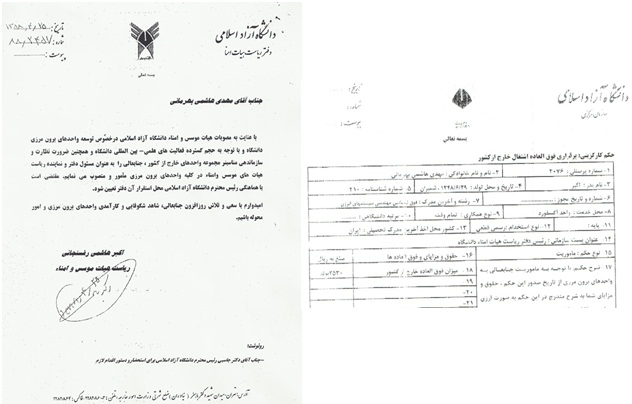 دانشگاه آزاد اسلامی
دفتر ریاست هیات امنا
بسمه تعالی
جناب آقای مهدی هاشمی بهرمانی
با عنایت به مصوبات هیات موسس و امناء دانشگاه آزاد اسلامی درخصوص توسعه واحدهای برون مرزی
دانشگاه و با توجه به حجم گسترده فعالیت های علمی- بین المللی دانشگاه و همچنین ضرورت نظارت و
سازماندهی مجموعه واحدهای خارج از کشور ، جنابعالی را به عنوان مسئول دفتر و نماینده ریاست
هیات های موسس وامناء در کلیه واحدهای برون مرزی مأمور و منصوب می نمایم. مقتضی است
با هماهنگی رئیس محترم دانشگاه آزاد اسلامی محل استقرار آن دفتر تعیین شود.
امیدوارم با سعی و تلاش روزافزون جنابعالی، شاهد شکوفایی و کارآمدی واحدهای برون مرزی و امور
محوله باشیم.
اکبر هاشمی رفسنجانی
ریاست هیات موسس و امناء
رونوشت:
-جناب آقای دکتر جاسبی رئیس محترم دانشگاه آزاد اسلامی برای استحضار و دستور اقدام لازم
دانشگاه آزاد اسلامی
سازمان مرکزی
تاریخ:
شماره:
پیوست:
بسمه تعالی
حکم کارگزینی(برقراری فوق العاده اشتغال خارج ازکشور
۱- شماره پرسنلی : ۲۰۷۶
۲- نام و نام خانوادگی: مهدی هاشمی بهرمانی
۳- نام پدر: اکبر
۴- تاریخ و محل تولد:
۵- شماره شناسنامه : ۲۱۰
۶- شماره و تاریخ مجوز
۷- رشته و آخرین مدرک :
۸- محل خدمت : واحد آکسفورد
۹- نوع همکاری : تمام وقت
۱۰- مرتبه دانشگاهی :
۱۱- پایه :
۱۲- نوع استخدام :رسمی
۱۳- کشور محل اخذ آخرین مدرک تحصیلی : ایران
۱۴- عنوان پست سازمانی : رئیس دفتر ریاست هیات امناء دانشگاه
۱۵- نوع حکم : ماموریت
۱۶- حقوق و مزایای و فوق العاده ها
مبلغ به ریال
۱۷- شرح حکم :با توجه به ماموریت جنابعالی به
واحدهای برون مرزی از تاریخ صدور این حکم ، حقوق و
مزایای شما به شرح مندرج در این حکم به صورت ارزی
۱۸- میزان فوق العاده خارج از کشور
۱۹
۲۰-
۲۱-